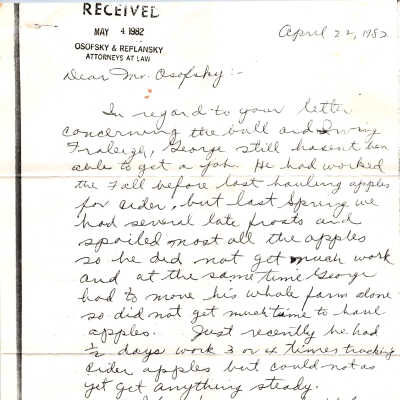 RECEIVED
MAY 4 1982
OSOFSKY & REPLANSKY
ATTORNEYS AT LAW
April 22, 1982
Dear Mr. Osofsky:-
In regard to your letter
concerning the bull and Irving
Fraleigh, George still hasent ben
able to get a job. He had worked
the Fall before last hauling apples
for cider, but last Spring we
had several late frosts and
spoiled most all the apples
so he did not get much work
and at the same time George
had to move his whole farm alone
so did not get much time to haul
apples. Just recently he had
1/2 days work 3 or 4 times trucking
cider apples but could not as
yet get anything steady.